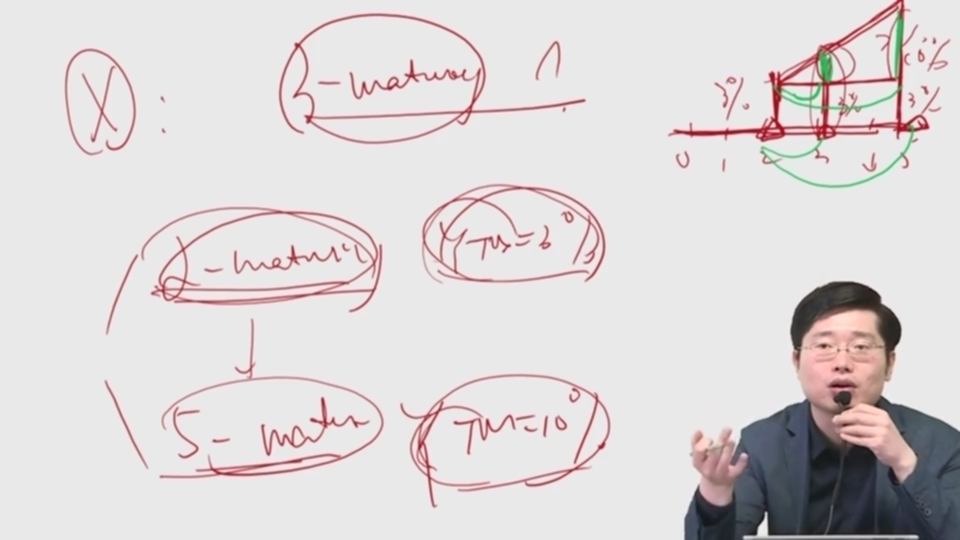 X : 3-maturity
2-maturity YTM=3%
5-matur YTM=10%
3% 3% 3%
0 1 2 3 4 5